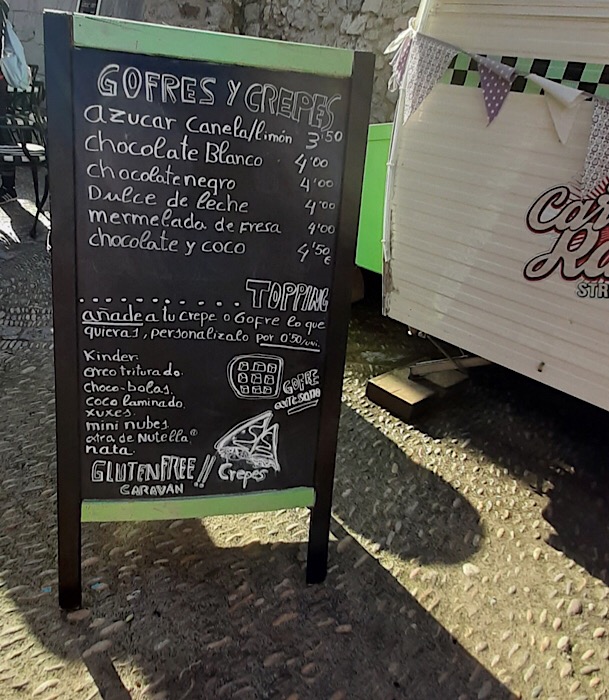 GOFRES Y CREPES
azucar canela/limón 3'50
chocolate Blanco 4'00
chocolate negro 4'00
Dulce de leche 4'00
mermelada de fresa 4'00
chocolate y coco 4'50 €
TOPPING
añade a tu crepe o Gofre lo que
quieras, personalizalo por 0'50/uni.
Kinder.
oreo triturado.
choco-bolas.
coco laminado.
xuxes.
mini nubes.
extra de Nutella®
nata.
GOFRE
artesano
GLUTEN FREE!!
CARAVAN
Crepes
STR